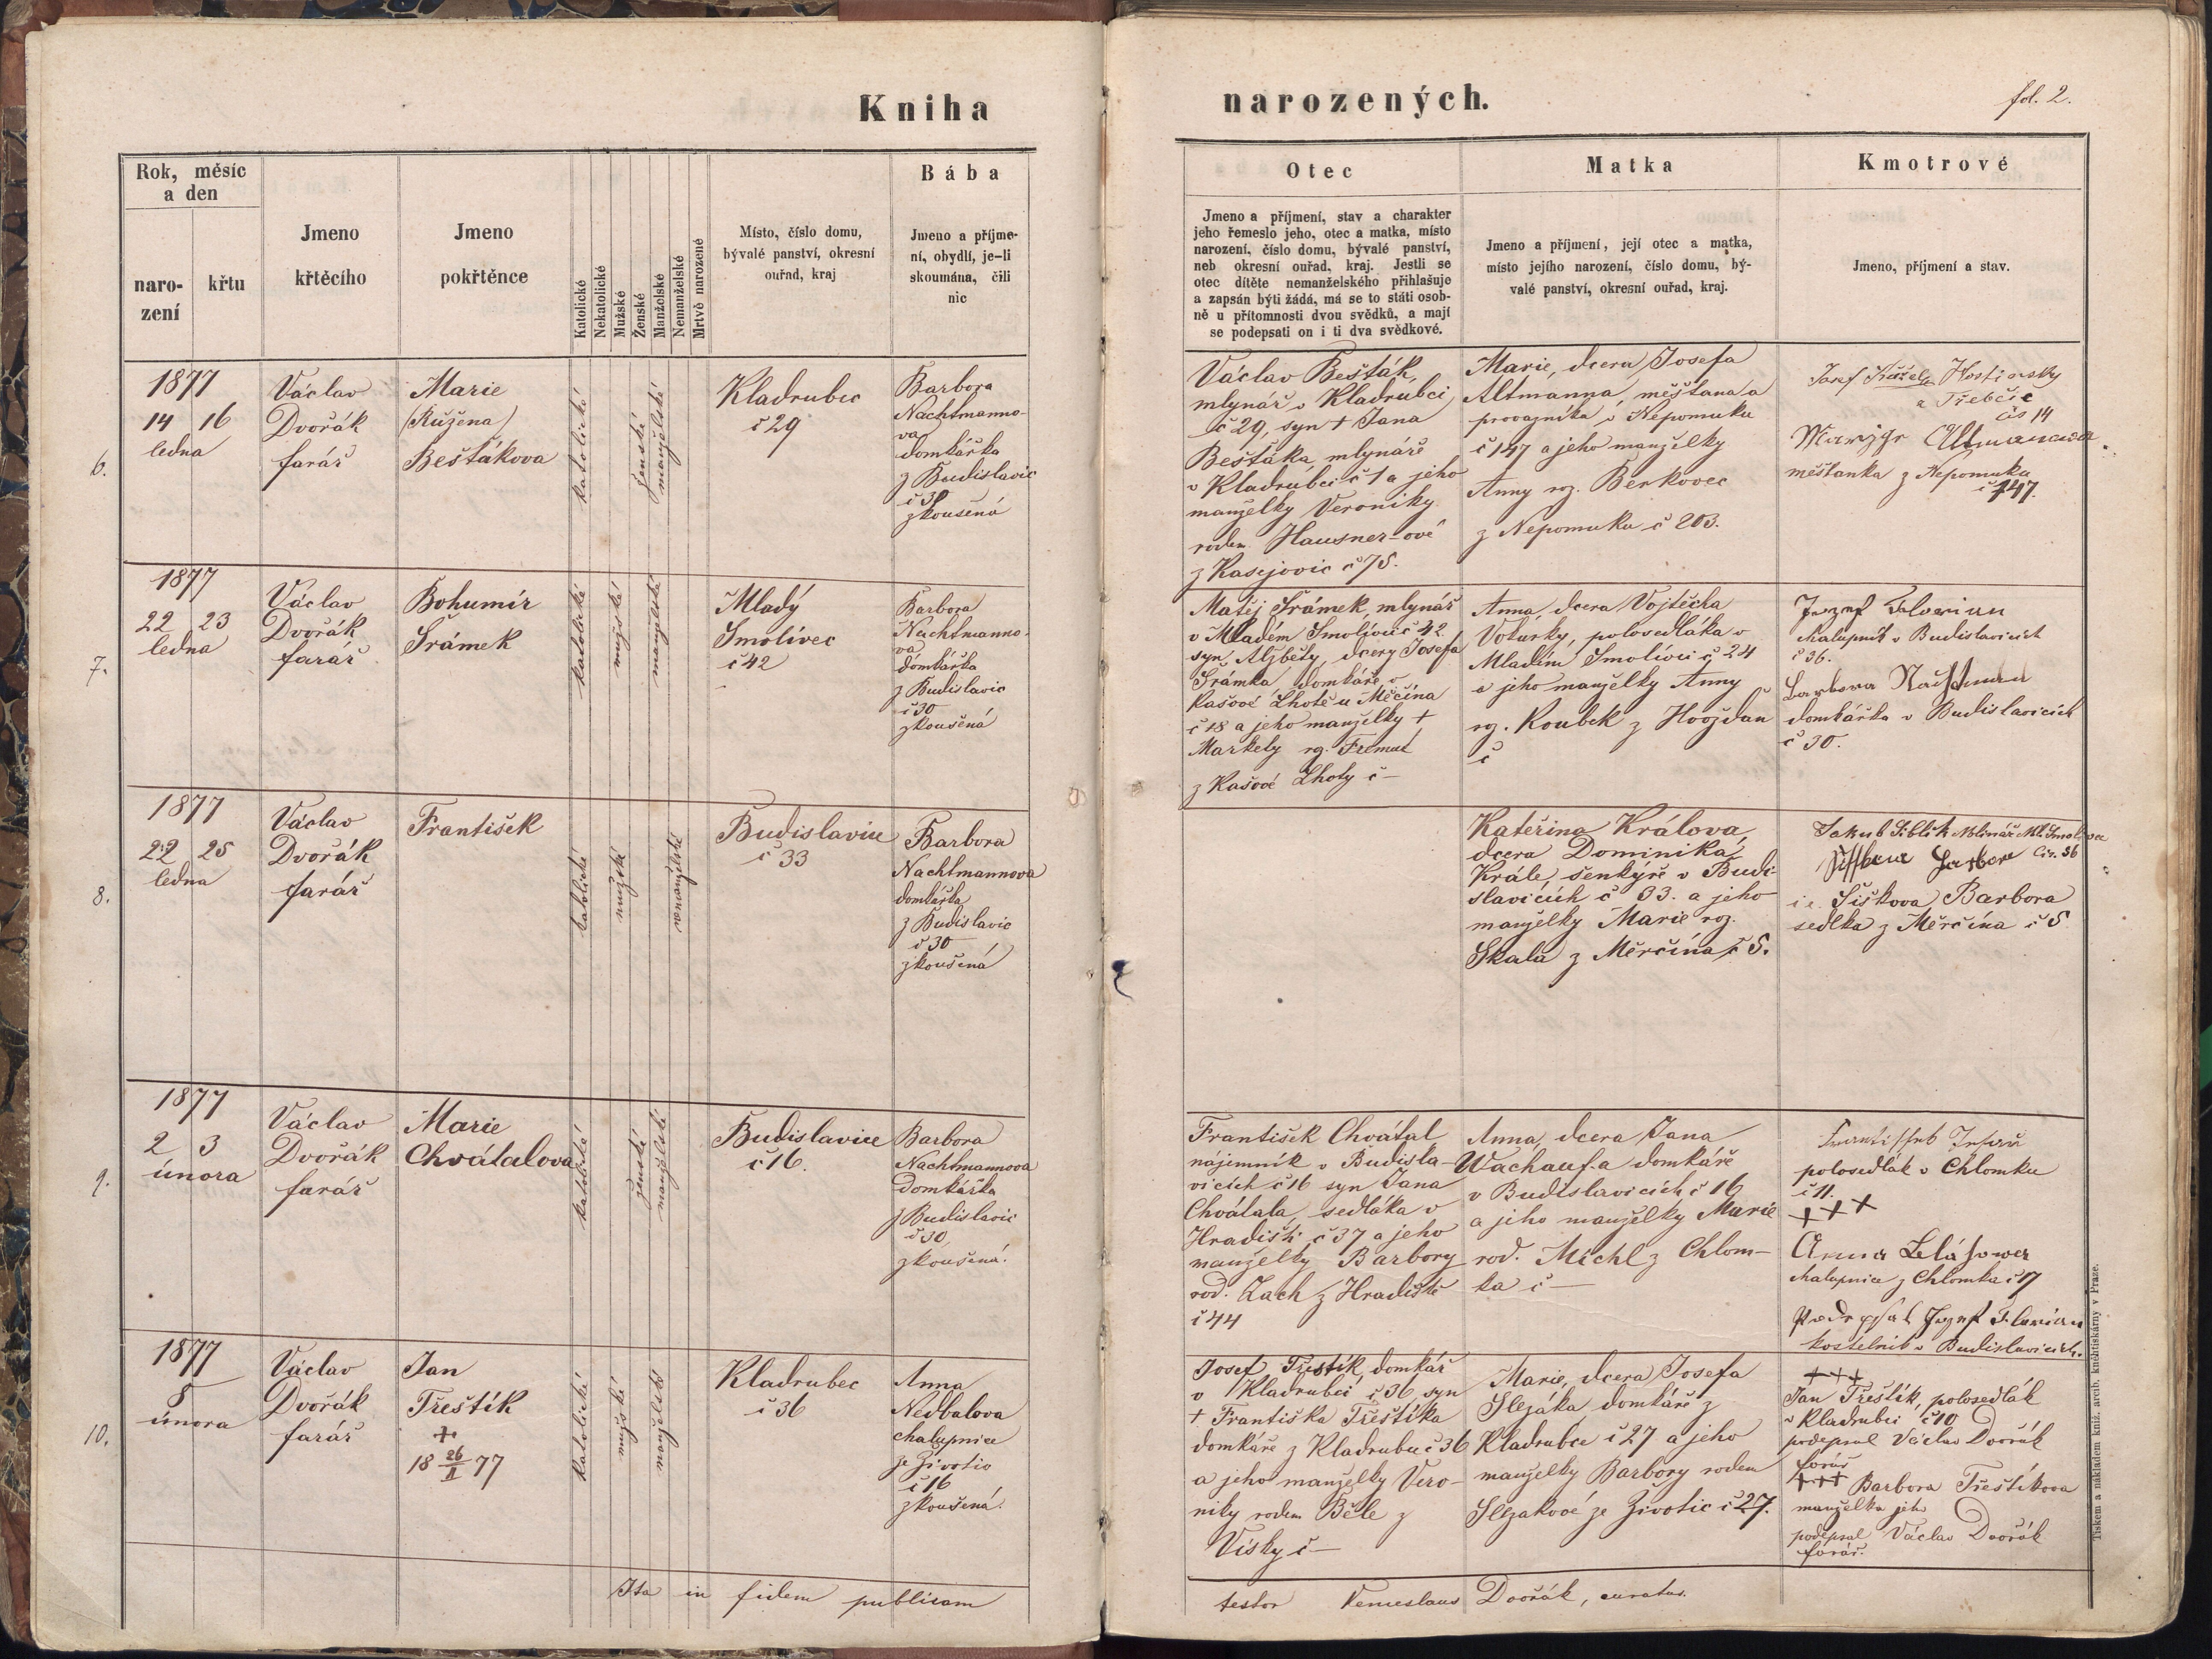 Kniha
narozených.
fol. 2.
Rok, měsíc
a den
naro-
zení
křtu
Jmeno
křtěcího
Jmeno
pokřtěnce
Katolické
Nekatolické
Mužské
Ženské
Manželské
Nemanželské
Mrtvě narozené
Místo, číslo domu,
bývalé panství, okresní
ouřad, kraj
Bába
Jmeno a příjme-
ní, obydlí, je-li
skoumána, čili
nic
Otec
Jmeno a příjmení, stav a charakter
jeho řemeslo jeho, otec a matka, místo
narození, číslo domu, bývalé panství,
neb okresní ouřad, kraj. Jestli se
otec dítěte nemanželského přihlašuje
a zapsán býti žádá, má se to státi osob-
ně u přítomnosti dvou svědků, a mají
se podepsati on i ti dva svědkové.
Matka
Jmeno a příjmení, její otec a matka,
místo jejího narození, číslo domu, bý-
valé panství, okresní ouřad, kraj.
Kmotrové
Jmeno, příjmení a stav.
6.
1877
14 16
ledna
Václav
Dvořák
farář
Marie
(Růžena)
Beštákova
katolické
ženské
manželské
Kladrubec
č 29
Barbora
Nachtmanno-
va
domkářka
z Budislavic
č 30
zkoušená
Václav Bešták,
mlynář v Kladrubci
č 29, syn + Jana
Beštáka mlynáře
v Kladrubci č 1 a jeho
manželky Veroniky
rodem Hausner-ové
z Kasejovic č 75.
Marie, dcera Josefa
Altmanna, měšťana a
provazníka v Nepomuku
č 147 a jeho manželky
Anny roz. Berkovec
z Nepomuku č 203.
Josef Hostinsky
z Třebčic
čis 14
Altmanowa
měšťanka z Nepomuku
č 147.
7.
1877
22 23
ledna
Václav
Dvořák
farář
Bohumír
Šrámek
katolické
mužské
manželské
Mladý
Smolivec
č 42
Barbora
Nachtmanno-
va
domkářka
z Budislavic
č 30
zkoušená
Matěj Šrámek, mlynář
v Mladém Smolivci č 42
syn Alžběty, dcery Josefa
Šrámka domkáře v
Kašové Lhotě u Měčína
č 18 a jeho manželky +
Markety roz. Fremut
z Kašové Lhoty č —
Anna, dcera Vojtěcha
Voturky, polosedláka v
Mladém Smolivci č 24
a jeho manželky Anny
roz. Koubek z Hvožďan
č
Jozef Florian
chalupník v Budislavicích
č 36.
Barbora Nachtman
domkářka v Budislavicích
č 30.
8.
1877
22 25
ledna
Václav
Dvořák
farář
František
katolické
mužské
nemanželské
Budislavice
č 33
Barbora
Nachtmannova
domkářka
z Budislavic
č 30
zkoušená
Kateřina Králova,
dcera Dominika
Krále, šenkýře v Budi-
slavicích č 33. a jeho
manželky Marie roz.
Skala z Měrčína č 5.
Jakub Siblík Mlinář Ml. Smolivec
Čis. 36
i.e. Šiškova Barbora
sedlka z Měrčína č 5
9.
1877
2 3
února
Václav
Dvořák
farář
Marie
Chvátalova
katolické
ženské
manželské
Budislavice
č 16.
Barbora
Nachtmannova
Domkářka
z Budislavic
č 30
zkoušená.
František Chvátal
nájemník v Budisla-
vicích č 16 syn Jana
Chvátala, sedláka v
Hradišti č 37 a jeho
manželky Barbory
rod. Zach z Hradiště
č 44
Anna, dcera Jana
Wachauf-a domkáře
v Budislavicích č 16
a jeho manželky Marie
rod. Michl z Chlom-
ka č —
polosedlák v Chlomku
č 11.
+++
Anna
chalupnice z Chlomka č 17
Jozef Florian
kostelník v Budislavicích.
10.
1877
8
února
Václav
Dvořák
farář
Jan
Třeštík
+
18 26/II 77
katolické
mužské
manželské
Kladrubec
č 36
Anna
Nedbalova
chalupnice
ze Životic
č 16
zkoušená.
Josef Třeštík, domkář
v Kladrubci č 36, syn
+ Františka Třeštíka
domkáře z Kladrubce č 36
a jeho manželky Vero-
niky rodem Běle z
Vísky č —
Marie, dcera Josefa
Slezáka, domkáře z
Kladrubce č 27 a jeho
manželky Barbory rodem
Slezakové ze Životic č 27.
+++
Jan Třeštík, polosedlák
v Kladrubci č 10
podepsal Václav Dvořák
farář
+++ Barbora Třeštíkova
manželka jeho
podepsal Václav Dvořák
farář.
Ita in fidem publicam
testor Venceslaus Dvořák, curatus.
Tiskem a nákladem kníž. arcib. knihtiskárny v Praze.